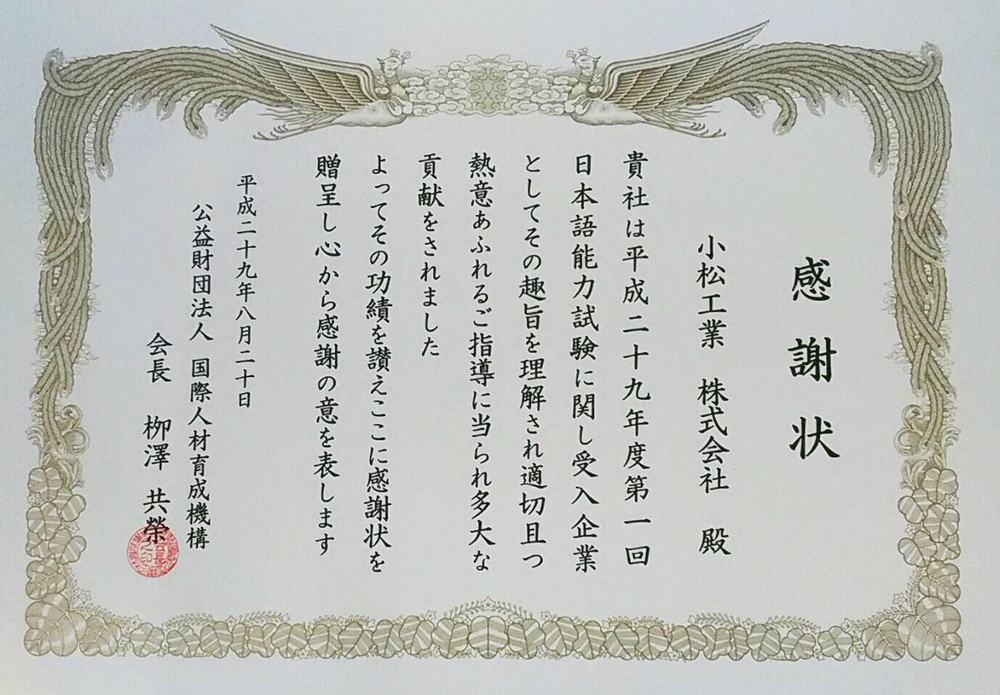 感謝状
小松工業 株式会社 殿
貴社は平成二十九年度第一回
日本語能力試験に関し受入企業
としてその趣旨を理解され適切且つ
熱意あふれるご指導に当られ多大な
貢献をされました
よってその功績を讃えここに感謝状を
贈呈し心から感謝の意を表します
平成二十九年八月二十日
公益財団法人 国際人材育成機構
会長 栁澤 共榮